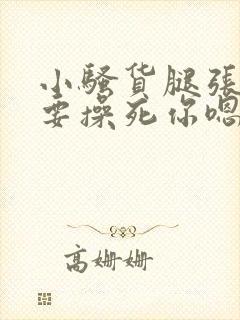 小骚货腿张
要操死你嗯
高姗姗